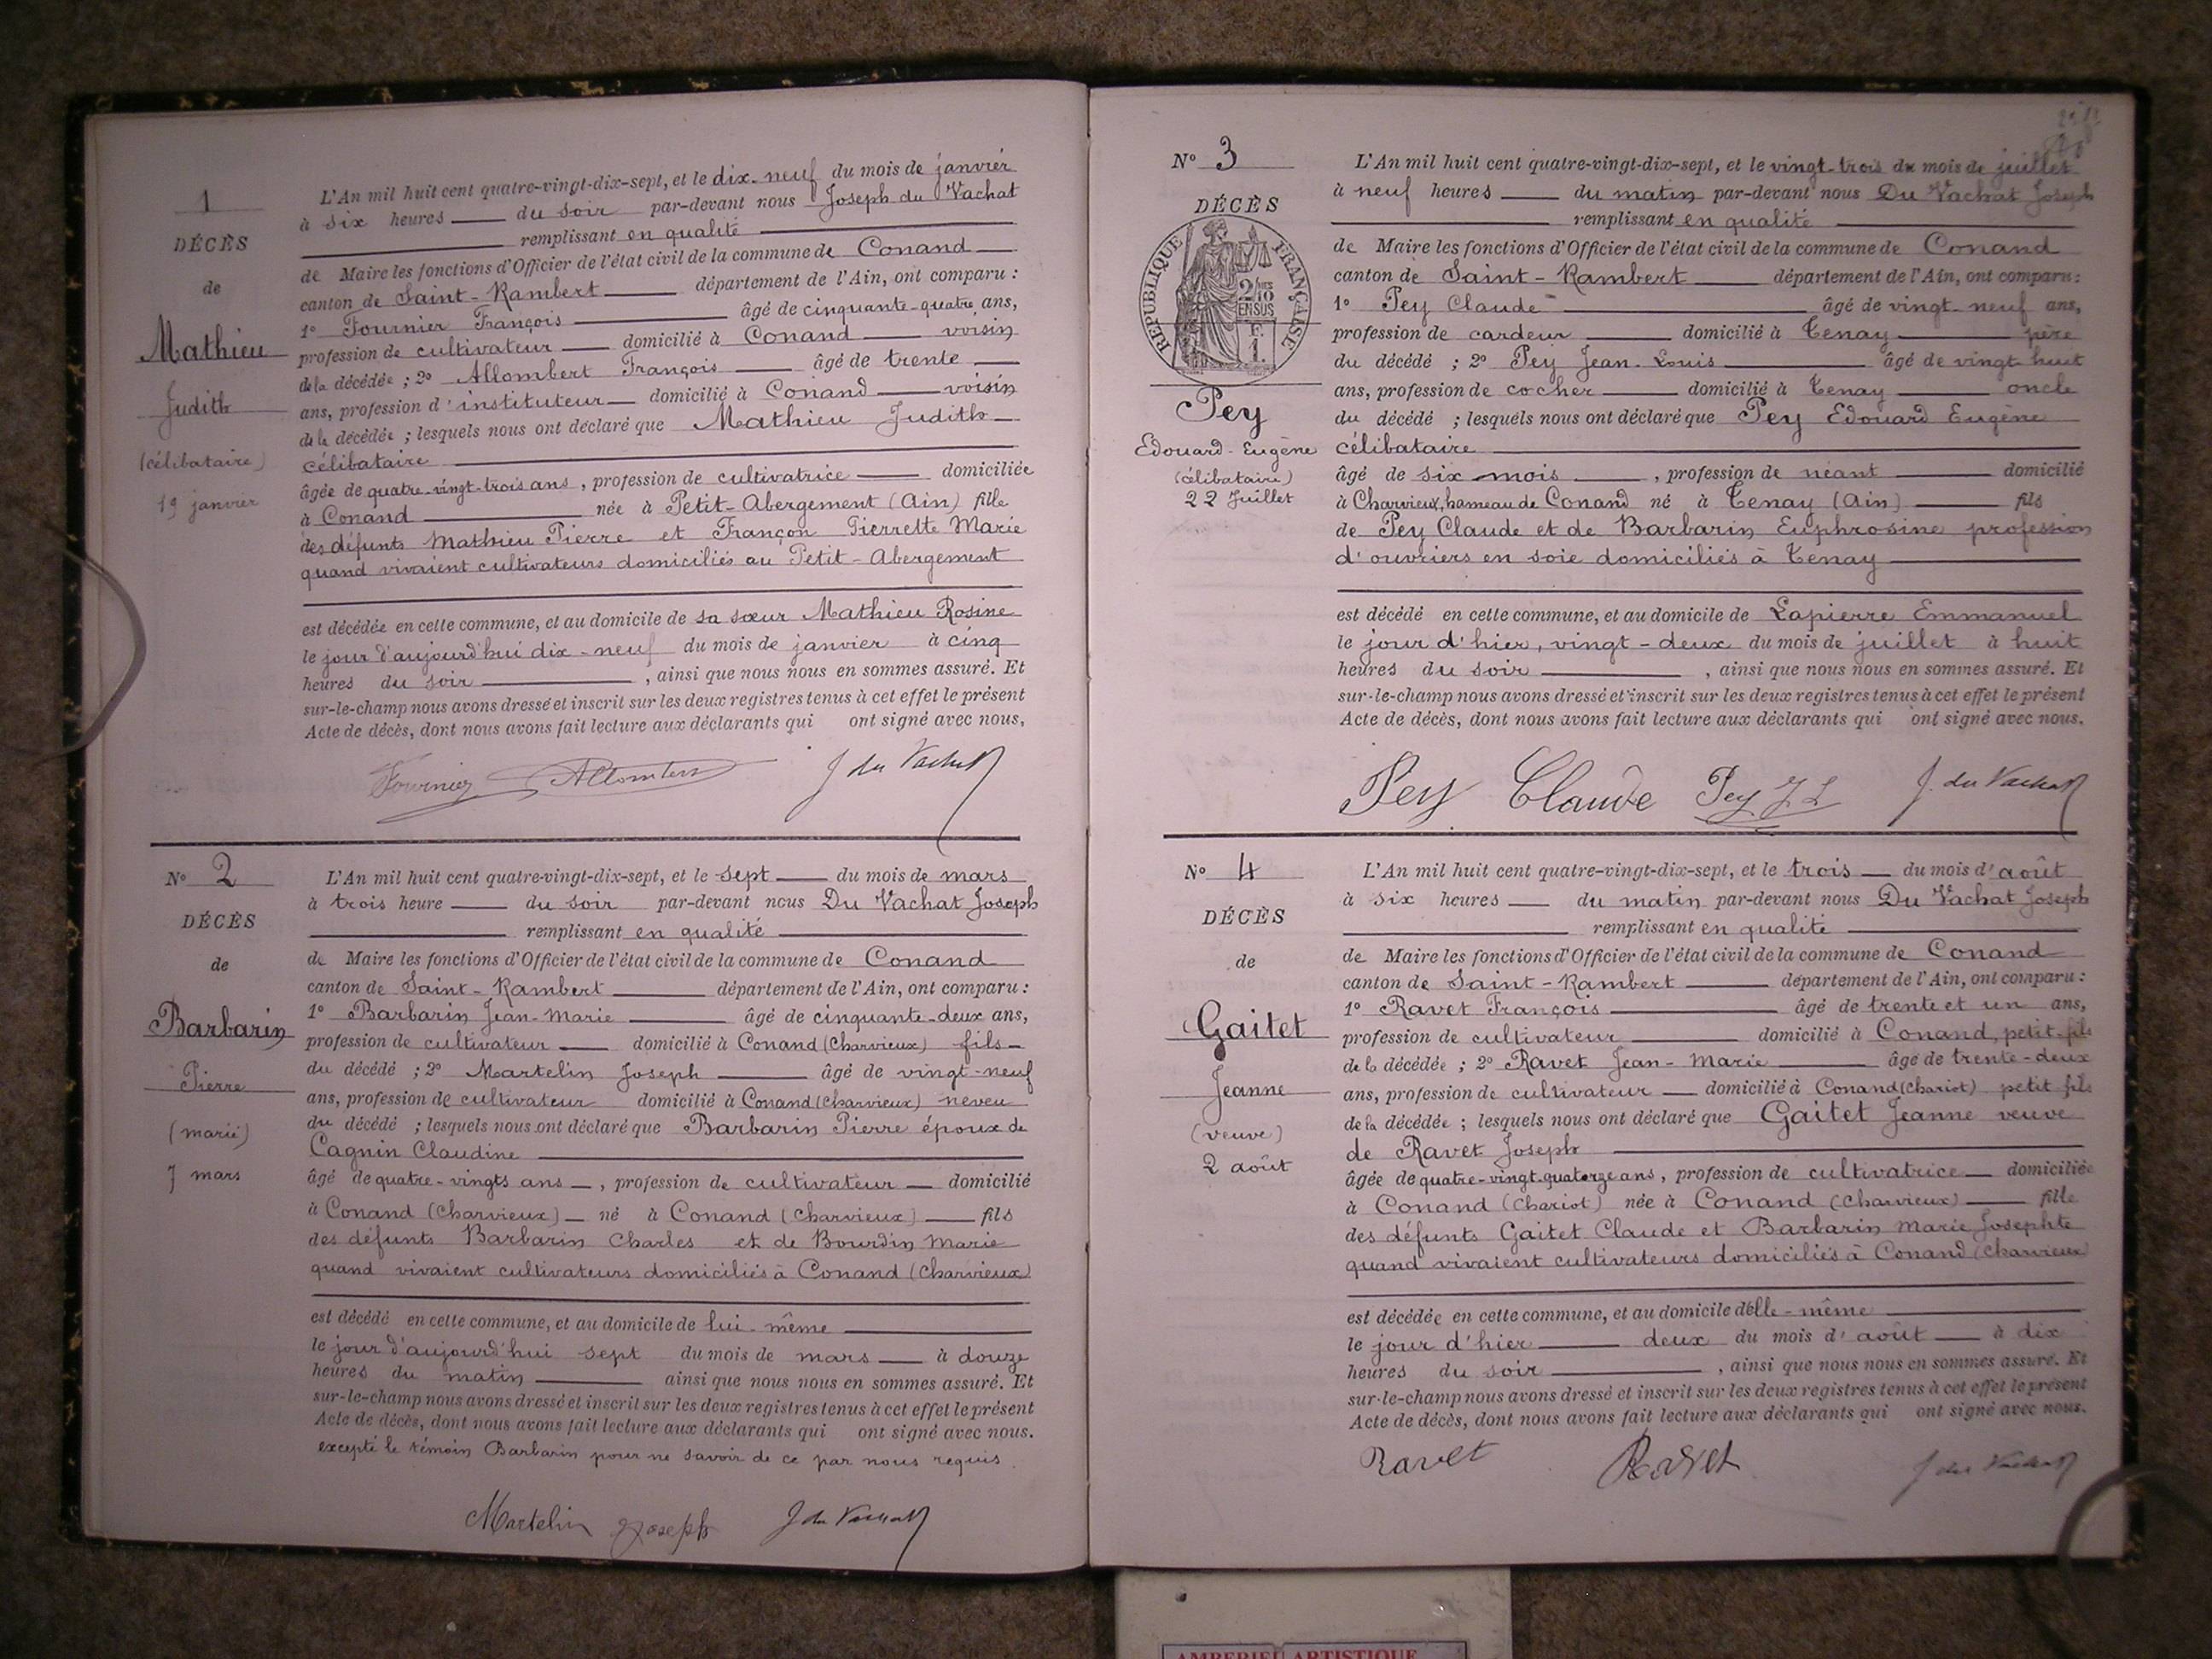 1
DÉCÈS
de
Mathieu
Judith
(célibataire)
19 janvier
L'An mil huit cent quatre-vingt-dix-sept, et le dix-neuf du mois de janvier
à six heures du soir par-devant nous Joseph du Vachat
remplissant en qualité
de Maire les fonctions d'Officier de l'état civil de la commune de Conand
canton de Saint-Rambert département de l'Ain, ont comparu :
1° Fournier François âgé de cinquante-quatre ans,
profession de cultivateur domicilié à Conand voisin
de la décédée ; 2° Allombert François âgé de trente
ans, profession d'instituteur domicilié à Conand voisin
de la décédée ; lesquels nous ont déclaré que Mathieu Judith
célibataire
âgée de quatre-vingt-trois ans, profession de cultivatrice domiciliée
à Conand née à Petit-Abergement (Ain) fille
des défunts Mathieu Pierre et Françon Pierrette Marie
quand vivaient cultivateurs domiciliés au Petit-Abergement
est décédée en cette commune, et au domicile de sa sœur Mathieu Rosine
le jour d'aujourd'hui dix-neuf du mois de janvier à cinq
heures du soir, ainsi que nous nous en sommes assuré. Et
sur-le-champ nous avons dressé et inscrit sur les deux registres tenus à cet effet le présent
Acte de décès, dont nous avons fait lecture aux déclarants qui ont signé avec nous,
Fournier Allombert J du Vachat
N° 2
DÉCÈS
de
Barbarin
Pierre
(marié)
7 mars
L'An mil huit cent quatre-vingt-dix-sept, et le sept du mois de mars
à trois heure du soir par-devant nous Du Vachat Joseph
remplissant en qualité
de Maire les fonctions d'Officier de l'état civil de la commune de Conand
canton de Saint-Rambert département de l'Ain, ont comparu :
1° Barbarin Jean-Marie âgé de cinquante-deux ans,
profession de cultivateur domicilié à Conand (Charvieux) fils
du décédé ; 2° Martelin Joseph âgé de vingt-neuf
ans, profession de cultivateur domicilié à Conand (Charvieux) neveu
du décédé ; lesquels nous ont déclaré que Barbarin Pierre époux de
Cagnin Claudine
âgé de quatre-vingts ans, profession de cultivateur domicilié
à Conand (Charvieux) né à Conand (Charvieux) fils
des défunts Barbarin Charles et de Bourdin Marie
quand vivaient cultivateurs domiciliés à Conand (Charvieux)
est décédé en cette commune, et au domicile de lui-même
le jour d'aujourd'hui sept du mois de mars à douze
heures du matin ainsi que nous nous en sommes assuré. Et
sur-le-champ nous avons dressé et inscrit sur les deux registres tenus à cet effet le présent
Acte de décès, dont nous avons fait lecture aux déclarants qui ont signé avec nous.
excepté le témoin Barbarin pour ne savoir de ce par nous requis.
Martelin Joseph J du Vachat
N° 3
DÉCÈS
RÉPUBLIQUE FRANÇAISE
2/10 EN SUS
F. 1.
Pey
Edouard-Eugène
(célibataire)
22 Juillet
L'An mil huit cent quatre-vingt-dix-sept, et le vingt-trois du mois de juillet
à neuf heures du matin par-devant nous Du Vachat Joseph
remplissant en qualité
de Maire les fonctions d'Officier de l'état civil de la commune de Conand
canton de Saint-Rambert département de l'Ain, ont comparu :
1° Pey Claude âgé de vingt-neuf ans,
profession de cardeur domicilié à Tenay père
du décédé ; 2° Pey Jean-Louis âgé de vingt huit
ans, profession de cocher domicilié à Tenay oncle
du décédé ; lesquels nous ont déclaré que Pey Edouard Eugène
célibataire
âgé de six mois, profession de néant domicilié
à Charvieux, hameau de Conand né à Tenay (Ain) fils
de Pey Claude et de Barbarin Euphrosine profession
d'ouvriers en soie domiciliés à Tenay
est décédé en cette commune, et au domicile de Lapierre Emmanuel
le jour d'hier, vingt-deux du mois de juillet à huit
heures du soir, ainsi que nous nous en sommes assuré. Et
sur-le-champ nous avons dressé et inscrit sur les deux registres tenus à cet effet le présent
Acte de décès, dont nous avons fait lecture aux déclarants qui ont signé avec nous.
Pey Claude Pey J L J. du Vachat
N° 4
DÉCÈS
de
Gaitet
Jeanne
(veuve)
2 août
L'An mil huit cent quatre-vingt-dix-sept, et le trois du mois d'août
à six heures du matin par-devant nous Du Vachat Joseph
remplissant en qualité
de Maire les fonctions d'Officier de l'état civil de la commune de Conand
canton de Saint-Rambert département de l'Ain, ont comparu :
1° Ravet François âgé de trente et un ans,
profession de cultivateur domicilié à Conand, petit-fils
de la décédée ; 2° Ravet Jean-Marie âgé de trente-deux
ans, profession de cultivateur domicilié à Conand (Chariot) petit fils
de la décédée ; lesquels nous ont déclaré que Gaitet Jeanne veuve
de Ravet Joseph
âgée de quatre-vingt-quatorze ans, profession de cultivatrice domiciliée
à Conand (Chariot) née à Conand (Charvieux) fille
des défunts Gaitet Claude et Barbarin Marie Josephte
quand vivaient cultivateurs domiciliés à Conand (Charvieux)
est décédée en cette commune, et au domicile d'elle-même
le jour d'hier deux du mois d'août à dix
heures du soir, ainsi que nous nous en sommes assuré. Et
sur-le-champ nous avons dressé et inscrit sur les deux registres tenus à cet effet le présent
Acte de décès, dont nous avons fait lecture aux déclarants qui ont signé avec nous.
Ravet Ravet J du Vachat
AMBERIEU ARTISTIQUE